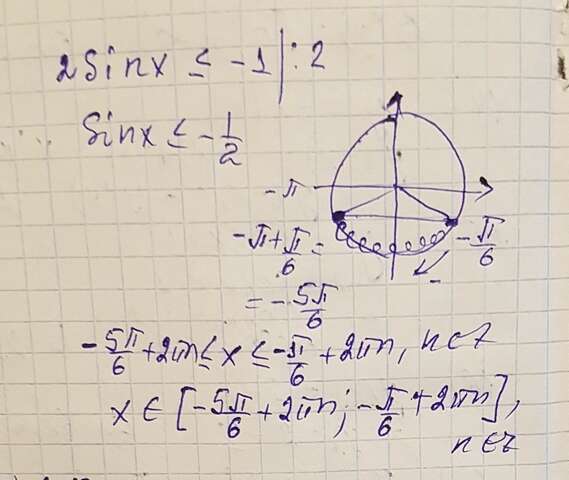 2sinx ≤ -1 | : 2
sinx ≤ -1/2
-π
-π+π/6 =
-π/6
= -5π/6
-
-5π/6+2πn ≤ x ≤ -π/6 + 2πn, n∈z
x ∈ [-5π/6 + 2πn; -π/6 + 2πn],
n∈z